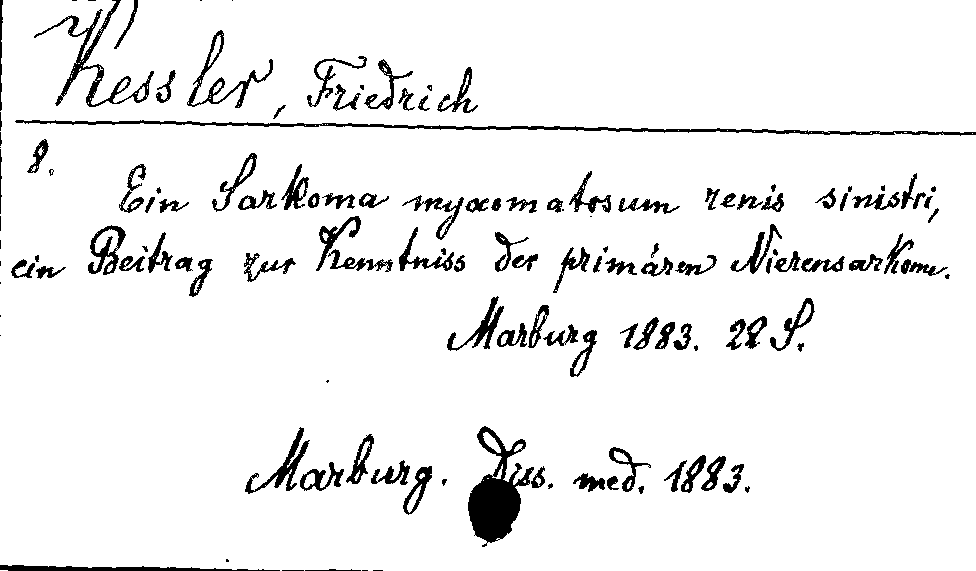 Kessler, Friedrich
8.
Ein Sarkoma myxomatosum renis sinistri,
ein Beitrag zur Kenntniss der primären Nierensarkome.
Marburg 1883. 22 S.
Marburg. Diss. med. 1883.